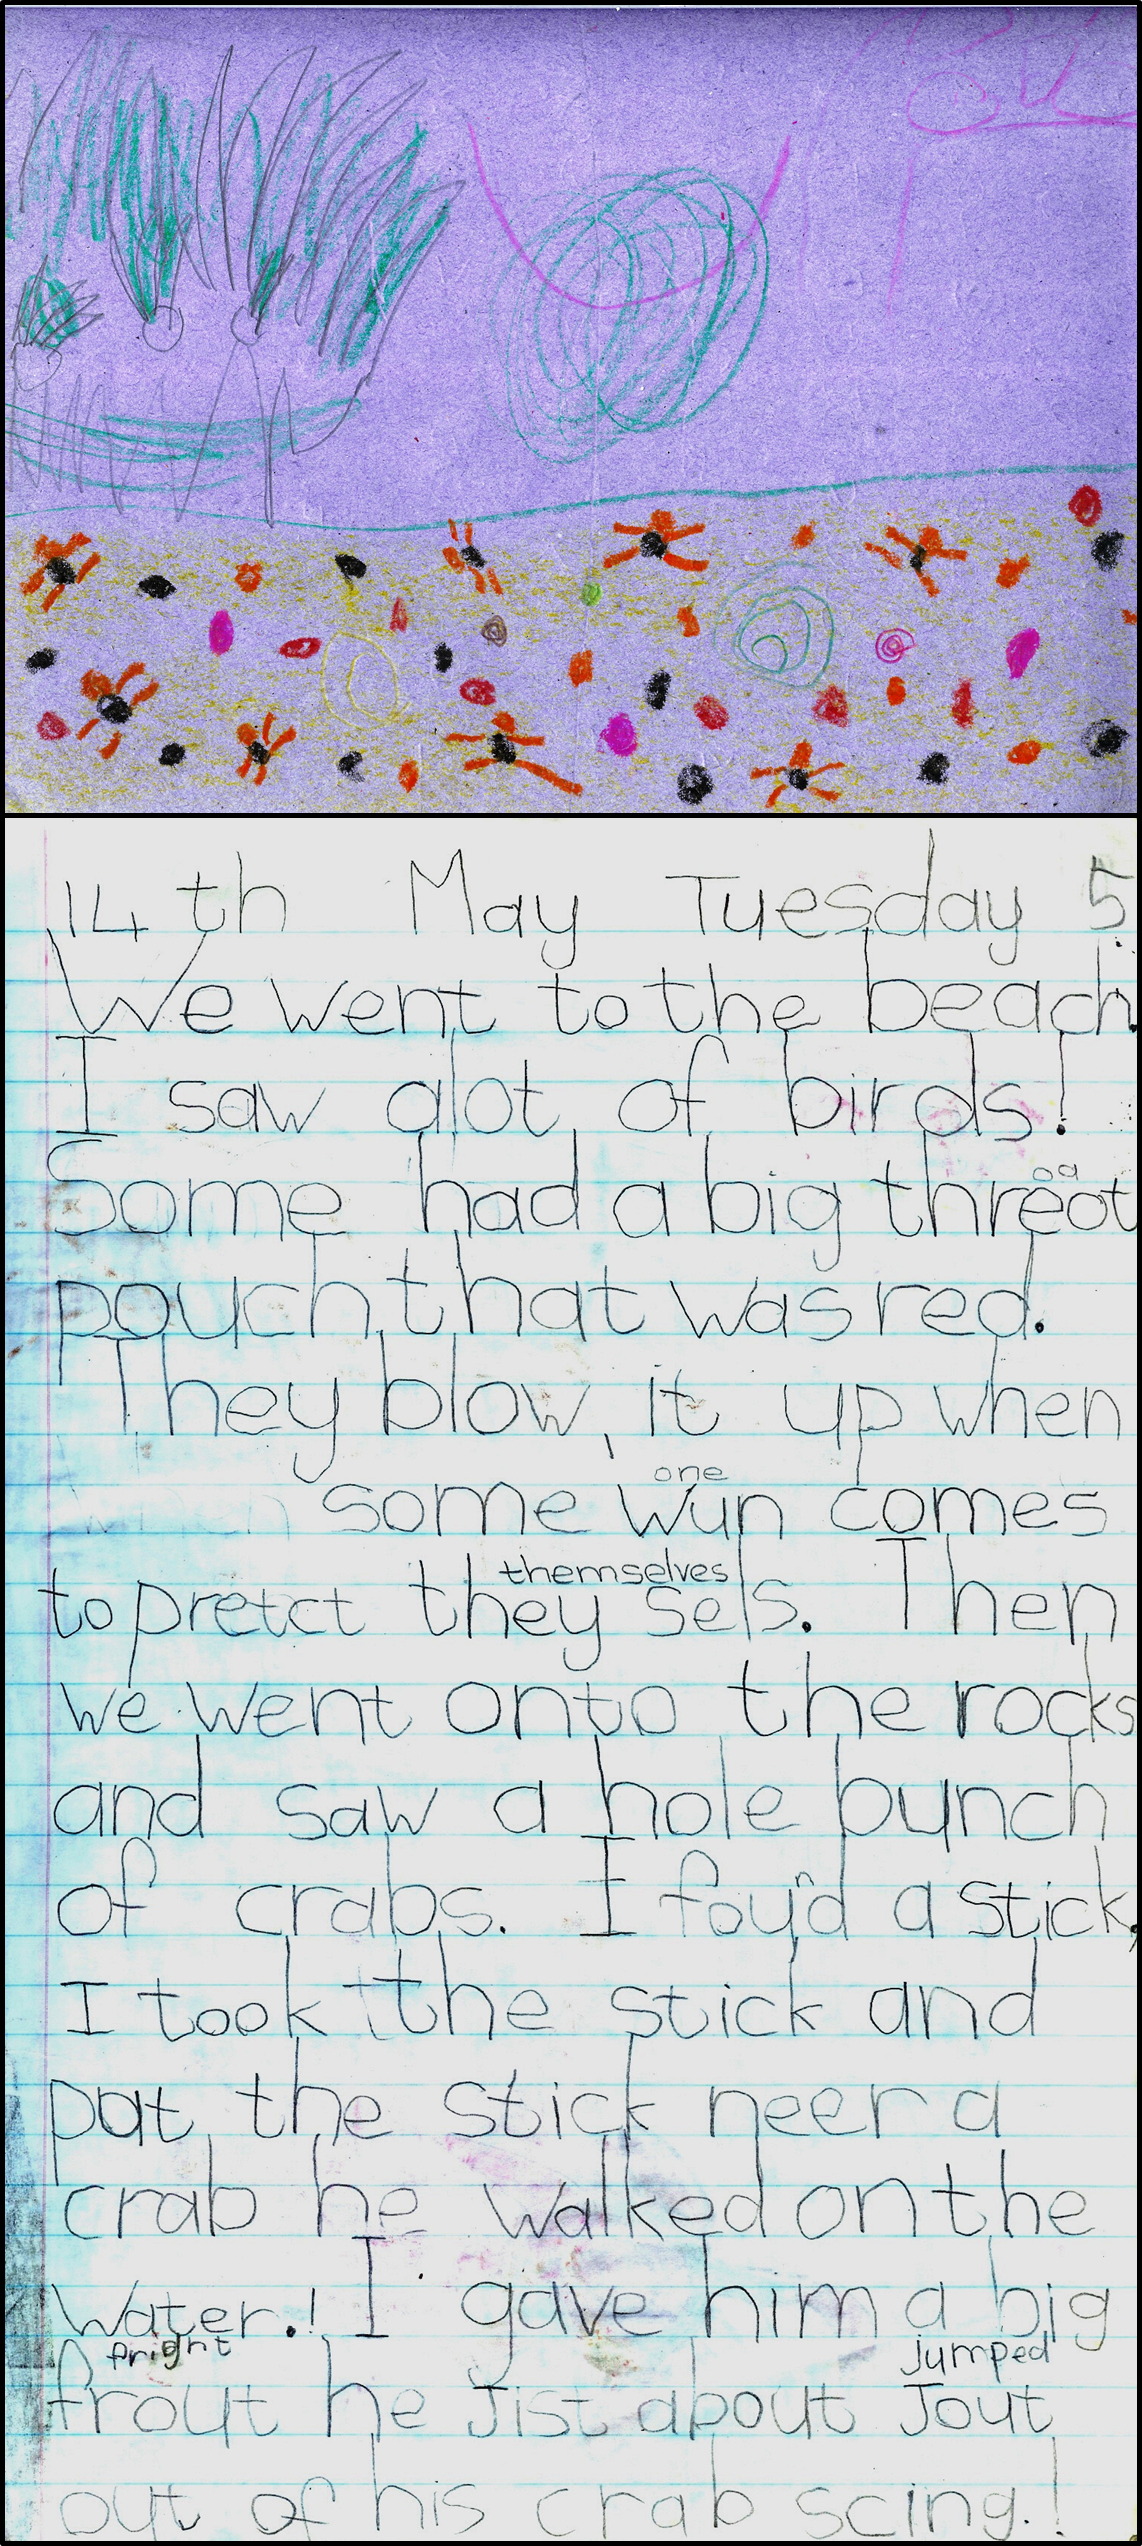 14th May Tuesday 5
We went to the beach.
I saw alot of birds!
oa
Some had a big threot
pouch that was red.
They blow, it up when
one
when some wun comes
themselves
to pretct they sels. Then
we went onto the rocks
and saw a hole bunch
of crabs. I fou'nd a stick,
I took the stick and
put the stick neer a
crab he walked on the
water.! I gave him a big
fright jumped
frout he Jist about Jout
out of his crab scing.!